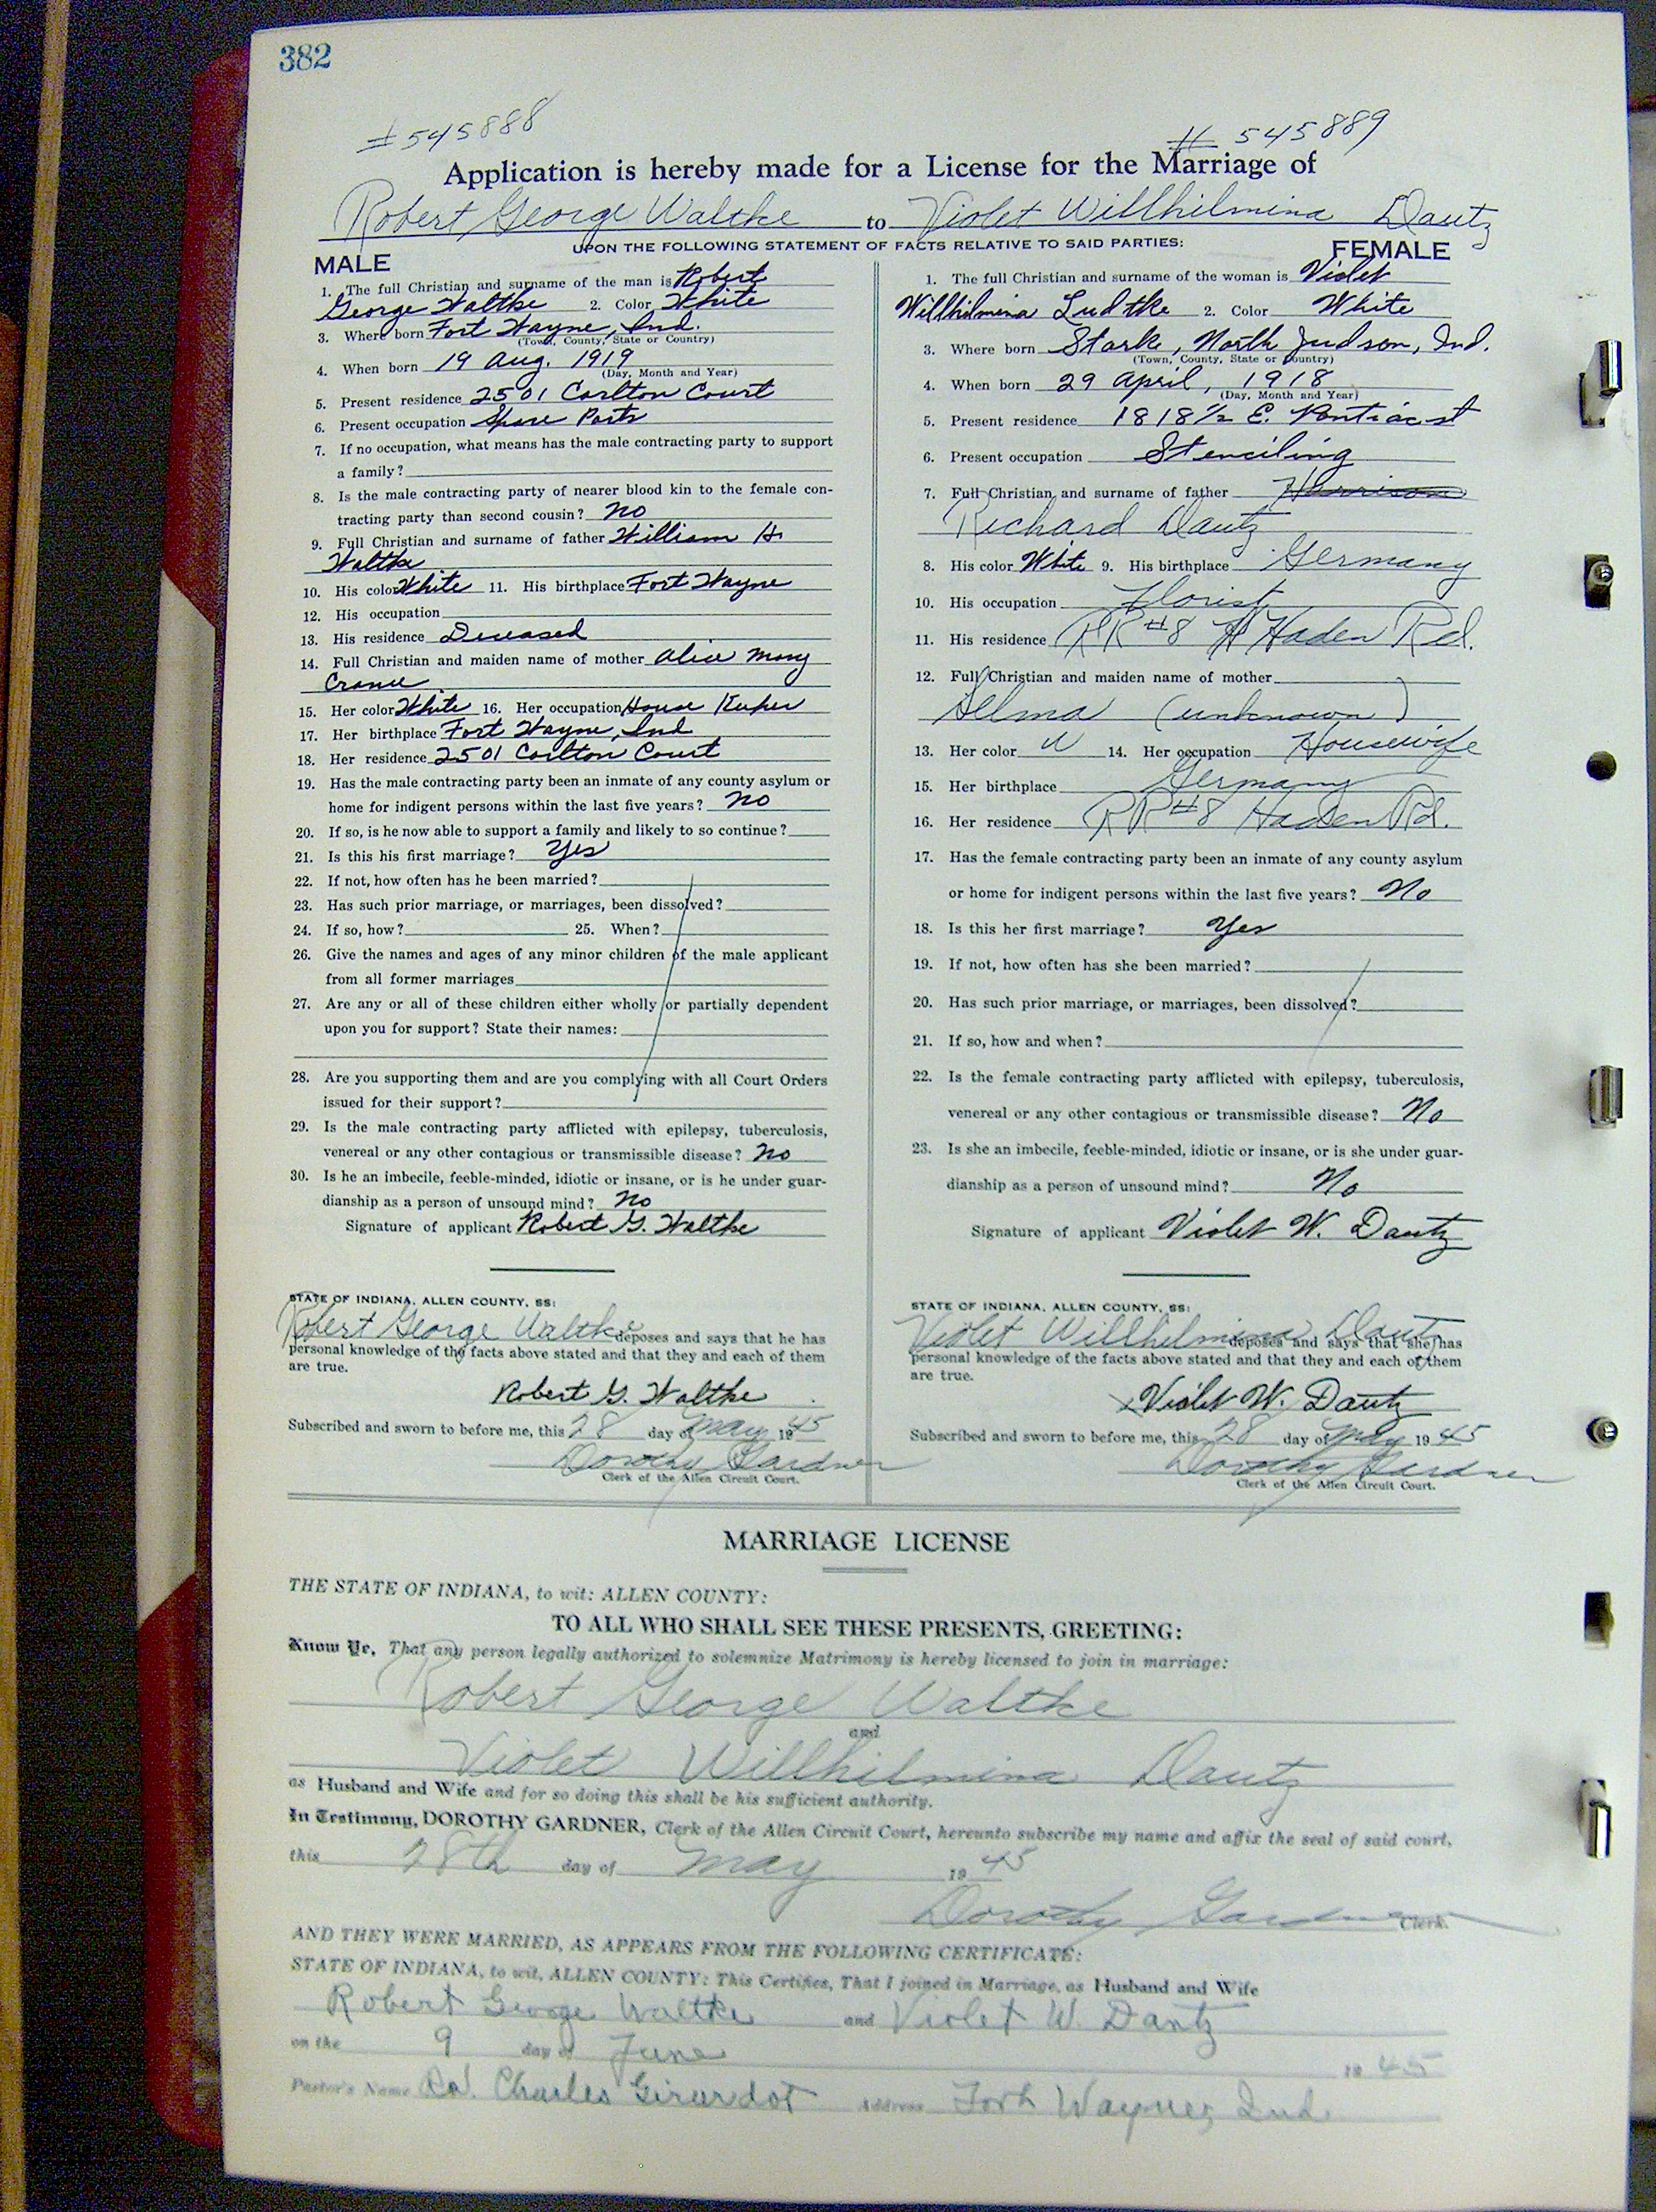 382
#545888
# 545889
Application is hereby made for a License for the Marriage of
Robert George Waltke to Violet Willhilmina Dautz
UPON THE FOLLOWING STATEMENT OF FACTS RELATIVE TO SAID PARTIES:
MALE
1. The full Christian and surname of the man is Robert
George Waltke 2. Color White
3. Where born Fort Wayne, Ind.
(Town, County, State or Country)
4. When born 19 Aug. 1919
(Day, Month and Year)
5. Present residence 2501 Carlton Court
6. Present occupation Spare Parts
7. If no occupation, what means has the male contracting party to support
a family?
8. Is the male contracting party of nearer blood kin to the female con-
tracting party than second cousin? No
9. Full Christian and surname of father William H.
Waltke
10. His color White 11. His birthplace Fort Wayne
12. His occupation
13. His residence Deceased
14. Full Christian and maiden name of mother Alice Mary
15. Her color White 16. Her occupation House Keeper
17. Her birthplace Fort Wayne, Ind
18. Her residence 2501 Carlton Court
19. Has the male contracting party been an inmate of any county asylum or
home for indigent persons within the last five years? No
20. If so, is he now able to support a family and likely to so continue?
21. Is this his first marriage? Yes
22. If not, how often has he been married?
23. Has such prior marriage, or marriages, been dissolved?
24. If so, how? 25. When?
26. Give the names and ages of any minor children of the male applicant
from all former marriages
27. Are any or all of these children either wholly or partially dependent
upon you for support? State their names:
28. Are you supporting them and are you complying with all Court Orders
issued for their support?
29. Is the male contracting party afflicted with epilepsy, tuberculosis,
venereal or any other contagious or transmissible disease? No
30. Is he an imbecile, feeble-minded, idiotic or insane, or is he under guar-
dianship as a person of unsound mind? No
Signature of applicant Robert G. Waltke
STATE OF INDIANA, ALLEN COUNTY, SS:
Robert George Waltke deposes and says that he has
personal knowledge of the facts above stated and that they and each of them
are true.
Robert G. Waltke
Subscribed and sworn to before me, this 28 day of May 1945
Dorothy Gardner
Clerk of the Allen Circuit Court.
FEMALE
1. The full Christian and surname of the woman is Violet
Willhilmina Ludtke 2. Color White
3. Where born Starke, North Judson, Ind.
(Town, County, State or Country)
4. When born 29 April, 1918
(Day, Month and Year)
5. Present residence 1818 1/2 E. Pontiac st
6. Present occupation Stenciling
7. Full Christian and surname of father Harrison
Richard Dautz
8. His color White 9. His birthplace Germany
10. His occupation Florist
11. His residence RR #8 Haden Rd.
12. Full Christian and maiden name of mother
Selma (unknown)
13. Her color W 14. Her occupation Housewife
15. Her birthplace Germany
16. Her residence RR #8 Haden Rd.
17. Has the female contracting party been an inmate of any county asylum
or home for indigent persons within the last five years? No
18. Is this her first marriage? Yes
19. If not, how often has she been married?
20. Has such prior marriage, or marriages, been dissolved?
21. If so, how and when?
22. Is the female contracting party afflicted with epilepsy, tuberculosis,
venereal or any other contagious or transmissible disease? No
23. Is she an imbecile, feeble-minded, idiotic or insane, or is she under guar-
dianship as a person of unsound mind? No
Signature of applicant Violet W. Dautz
STATE OF INDIANA, ALLEN COUNTY, SS:
Violet Willhilmina Dautz deposes and says that she has
personal knowledge of the facts above stated and that they and each of them
are true.
Violet W. Dautz
Subscribed and sworn to before me, this 28 day of May 1945
Dorothy Gardner
Clerk of the Allen Circuit Court.
MARRIAGE LICENSE
THE STATE OF INDIANA, to wit: ALLEN COUNTY:
TO ALL WHO SHALL SEE THESE PRESENTS, GREETING:
Know Ye, That any person legally authorized to solemnize Matrimony is hereby licensed to join in marriage:
Robert George Waltke
and
Violet Willhilmina Dautz
as Husband and Wife and for so doing this shall be his sufficient authority.
In Testimony, DOROTHY GARDNER, Clerk of the Allen Circuit Court, hereunto subscribe my name and affix the seal of said court,
this 28th day of May 1945
Dorothy Gardner Clerk.
AND THEY WERE MARRIED, AS APPEARS FROM THE FOLLOWING CERTIFICATE:
STATE OF INDIANA, to wit, ALLEN COUNTY: This Certifies, That I joined in Marriage, as Husband and Wife
Robert George Waltke and Violet W. Dantz
on the 9 day of June 1945
Pastor's Name Charles Girardot Address Fort Wayne, Ind.